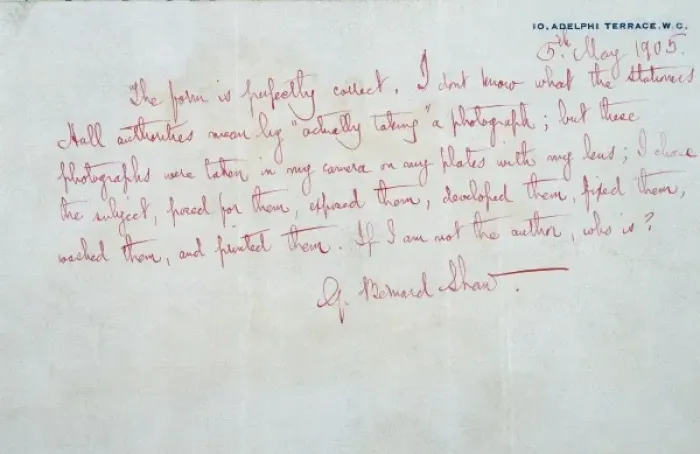 10, ADELPHI TERRACE, W.C.
5th May 1905.
The form is perfectly correct. I dont know what the Stationers
Hall authorities mean by "actually taking" a photograph; but these
photographs were taken in my camera on my plates with my lens; I chose
the subject, posed for them, exposed them, developed them, fixed them,
washed them, and printed them. If I am not the author, who is?
G. Bernard Shaw.